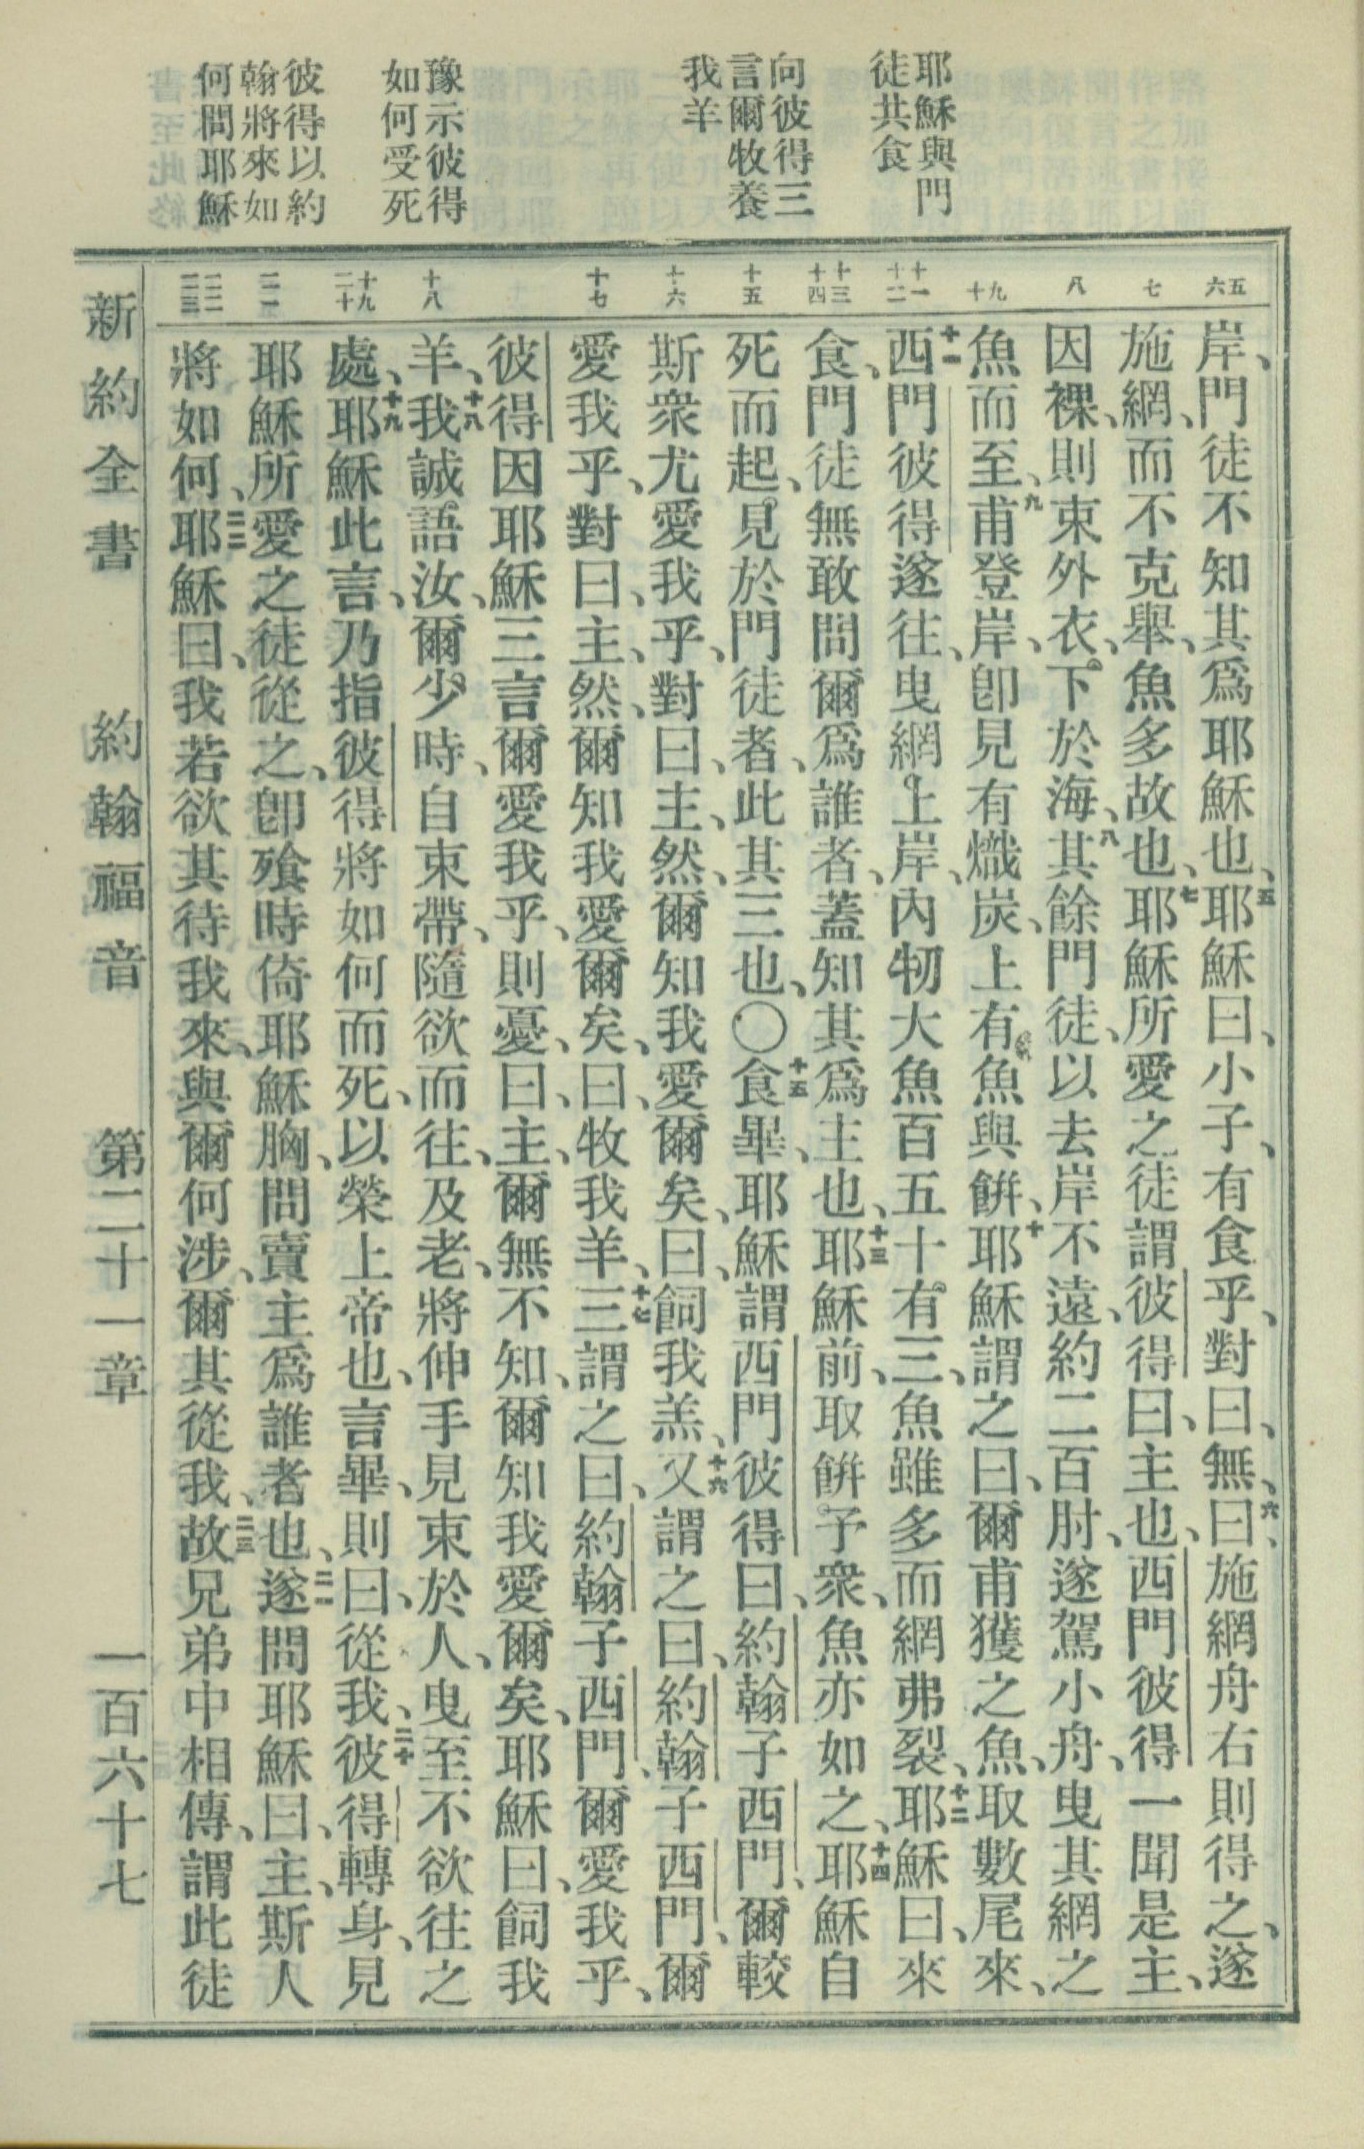 耶穌與門
徒共食
向彼得三
言爾牧養
我羊
豫示彼得
如何受死
彼得以約
翰將來如
何問耶穌
五
六
七
八
九
十
十一
十二
十三
十四
十五
十六
十七
十八
十九
二十
二一
二二
二三
岸、門徒不知其爲耶穌也、五耶穌曰、小子、有食乎、對曰、無、六曰、施網舟右則得之、遂
施網、而不克舉、魚多故也、七耶穌所愛之徒謂彼得曰、主也、西門彼得一聞是主、
因裸、則束外衣、下於海、八其餘門徒、以去岸不遠、約二百肘、遂駕小舟、曳其網之
魚而至、九甫登岸、卽見有熾炭、上有魚與餅、十耶穌謂之曰、爾甫獲之魚、取數尾來、
十一西門彼得遂往、曳網上岸、內牣大魚百五十有三、魚雖多而網弗裂、十二耶穌曰、來
食、門徒無敢問爾爲誰者、蓋知其爲主也、十三耶穌前、取餅予衆、魚亦如之、十四耶穌自
死而起、見於門徒者、此其三也、〇十五食畢、耶穌謂西門彼得曰、約翰子西門、爾較
斯衆尤愛我乎、對曰、主、然、爾知我愛爾矣、曰、飼我羔、十六又謂之曰、約翰子西門、爾
愛我乎、對曰、主、然、爾知我愛爾矣、曰、牧我羊、十七三謂之曰、約翰子西門、爾愛我乎、
彼得因耶穌三言爾愛我乎、則憂、曰、主、爾無不知、爾知我愛爾矣、耶穌曰、飼我
羊、十八我誠語汝、爾少時、自束帶、隨欲而往、及老、將伸手見束於人、曳至不欲往之
處、十九耶穌此言、乃指彼得將如何而死、以榮上帝也、言畢、則曰、從我、二十彼得轉身、見
耶穌所愛之徒從之、卽飧時倚耶穌胸、問賣主爲誰者也、二一遂問耶穌曰、主、斯人
將如何、二二耶穌曰、我若欲其待我來、與爾何涉、爾其從我、二三故兄弟中相傳、謂此徒
新約全書　約翰福音　第二十一章　一百六十七